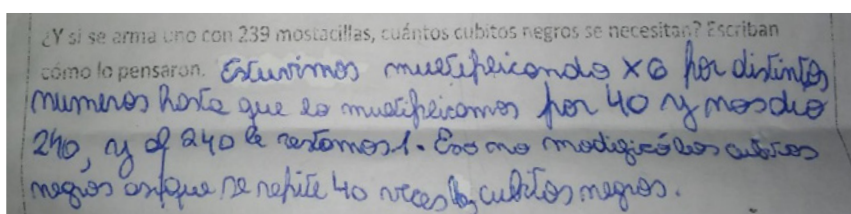 ¿Y si se arma uno con 239 mostacillas, cuántos cubitos negros se necesitan? Escriban
cómo lo pensaron. Estuvimos multiplicando x6 por distintos
numeros hasta que lo multiplicamos por 40 y nos dio
240, y al 240 le restamos 1. Eso no modificó los cubitos
negros asique se repite 40 veces los cubitos negros.